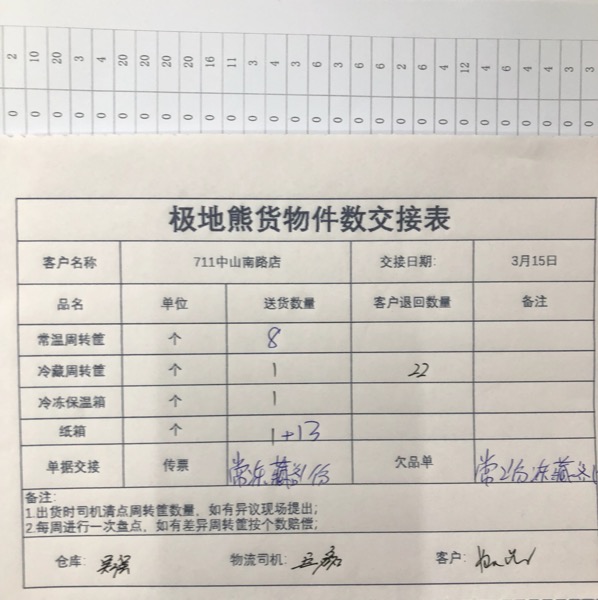 2 10 20 3 4 20 20 20 20 16 11 3 4 3 6 3 6 6 2 6 4 12 4 6 4 4 3 3
0 0 0 0 0 0 0 0 0 0 0 0 0 0 0 0 0 0 0 0 0 0 0 0 0 0 0 0
极地熊货物件数交接表
客户名称 711中山南路店 交接日期: 3月15日
品名 单位 送货数量 客户退回数量 备注
常温周转筐 个 8
冷藏周转筐 个 1 22
冷冻保温箱 个 1
纸箱 个 1+13
单据交接 传票 常冻藏各1份 欠品单 常2份冻藏各1
备注:
1.出货时司机清点周转筐数量，如有异议现场提出;
2.每周进行一次盘点，如有差异周转筐按个数赔偿;
仓库: 物流司机: 客户: